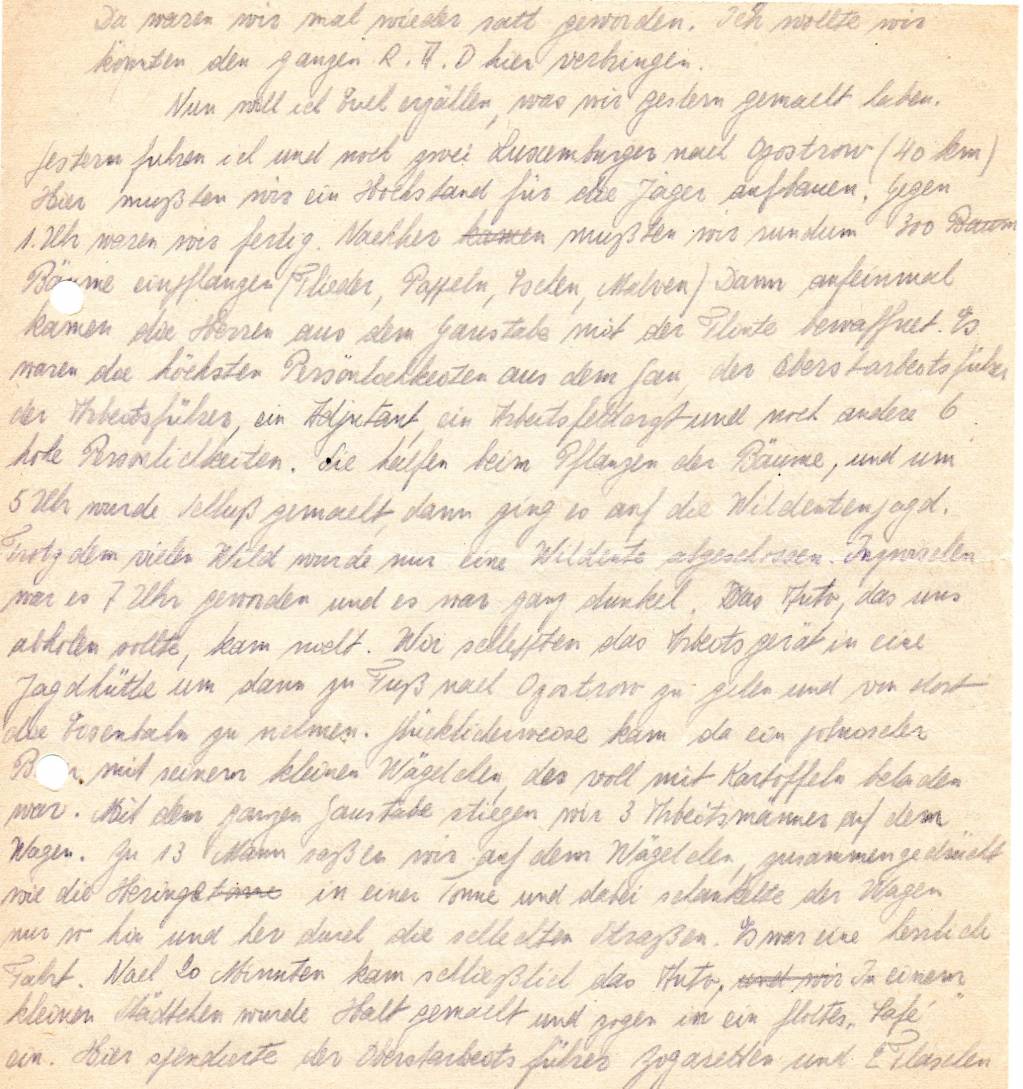 Da waren wir mal wieder satt geworden. Ich wollte wir
könnten den ganzen R.A.D hier verbringen.
Nun will ich Euch erzählen, was wir gestern gemacht haben.
Gestern fuhren ich und noch zwei Luxemburger nach Opostrow (40 km)
Hier mußten wir ein Hochstand für die Jäger aufbauen. Gegen
1. Uhr waren wir fertig. Nachher kamen mußten wir rundum 300 Baum
Bäume einpflanzen (Flieder, Pappeln, Eschen, Malven) Dann aufeinmal
kamen die Herren aus dem Gaustabe mit der Flinte bewaffnet. Es
waren die höchsten Persönlichkeiten aus dem Gau, der Oberstarbeitsführer
der Arbeitsführer, ein Adjutant, ein Arbeitsfeldarzt und noch andere 6
hohe Persönlichkeiten. Sie halfen beim Pflanzen der Bäume, und um
5 Uhr wurde Schluß gemacht, dann ging es auf die Wildentenjagd.
Trotz dem vielen Wild wurde nur eine Wildente abgeschossen. Inzwischen
war es 7 Uhr geworden und es war ganz dunkel. Das Auto, das uns
abholen sollte, kam nicht. Wir schleppten das Arbeitsgerät in eine
Jagdhütte um dann zu Fuß nach Opostrow zu gehen und von dort
die Eisenbahn zu nehmen. Glücklicherweise kam da ein polnischer
B r mit seinem kleinen Wägelchen, das voll mit Kartoffeln beladen
war. Mit dem ganzen Gaustabe stiegen wir 3 Arbeitsmänner auf dem
Wagen. Zu 13 Mann saßen wir auf dem Wägelchen, zusammengedrückt
wie die Heringe tonne in einer Tonne und dabei schaukelte der Wagen
nur so hin und her durch die schlechten Straßen. Es war eine herrliche
Fahrt. Nach 20 Minuten kam schließlich das Auto, und wir In einem
kleinen Städtchen wurde Halt gemacht und zogen in ein flottes "Café"
ein. Hier spendierte der Oberstarbeitsführer Zigaretten und 2 Flaschen